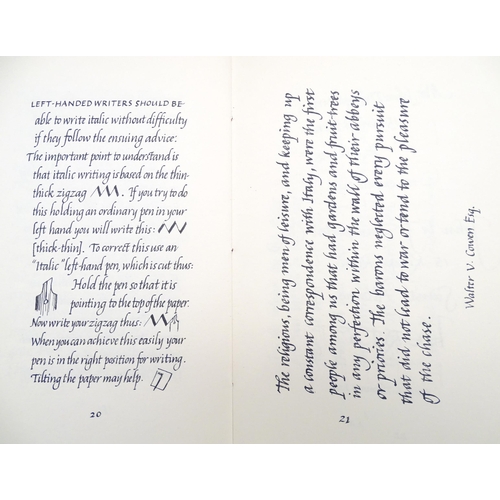 LEFT-HANDED WRITERS SHOULD BE-
able to write italic without difficulty
if they follow the ensuing advice:
The important point to understand is
that italic writing is based on the thin-
thick zigzag. If you try to do
this holding an ordinary pen in your
left hand you will write this:
[thick-thin]. To correct this use an
"Italic" left-hand pen, which is cut thus:
Hold the pen so that it is
pointing to the top of the paper.
Now write your zigzag thus:
When you can achieve this easily your
pen is in the right position for writing.
Tilting the paper may help.
20
The religious, being men of leisure, and keeping up
a constant correspondence with Italy, were the first
people among us that had gardens and fruit-trees
in any perfection within the wall of their abbeys
or priories. The barons neglected every pursuit
that did not lead to war or tend to the pleasure
of the chase.
Walter V. Cowen Esq.
21